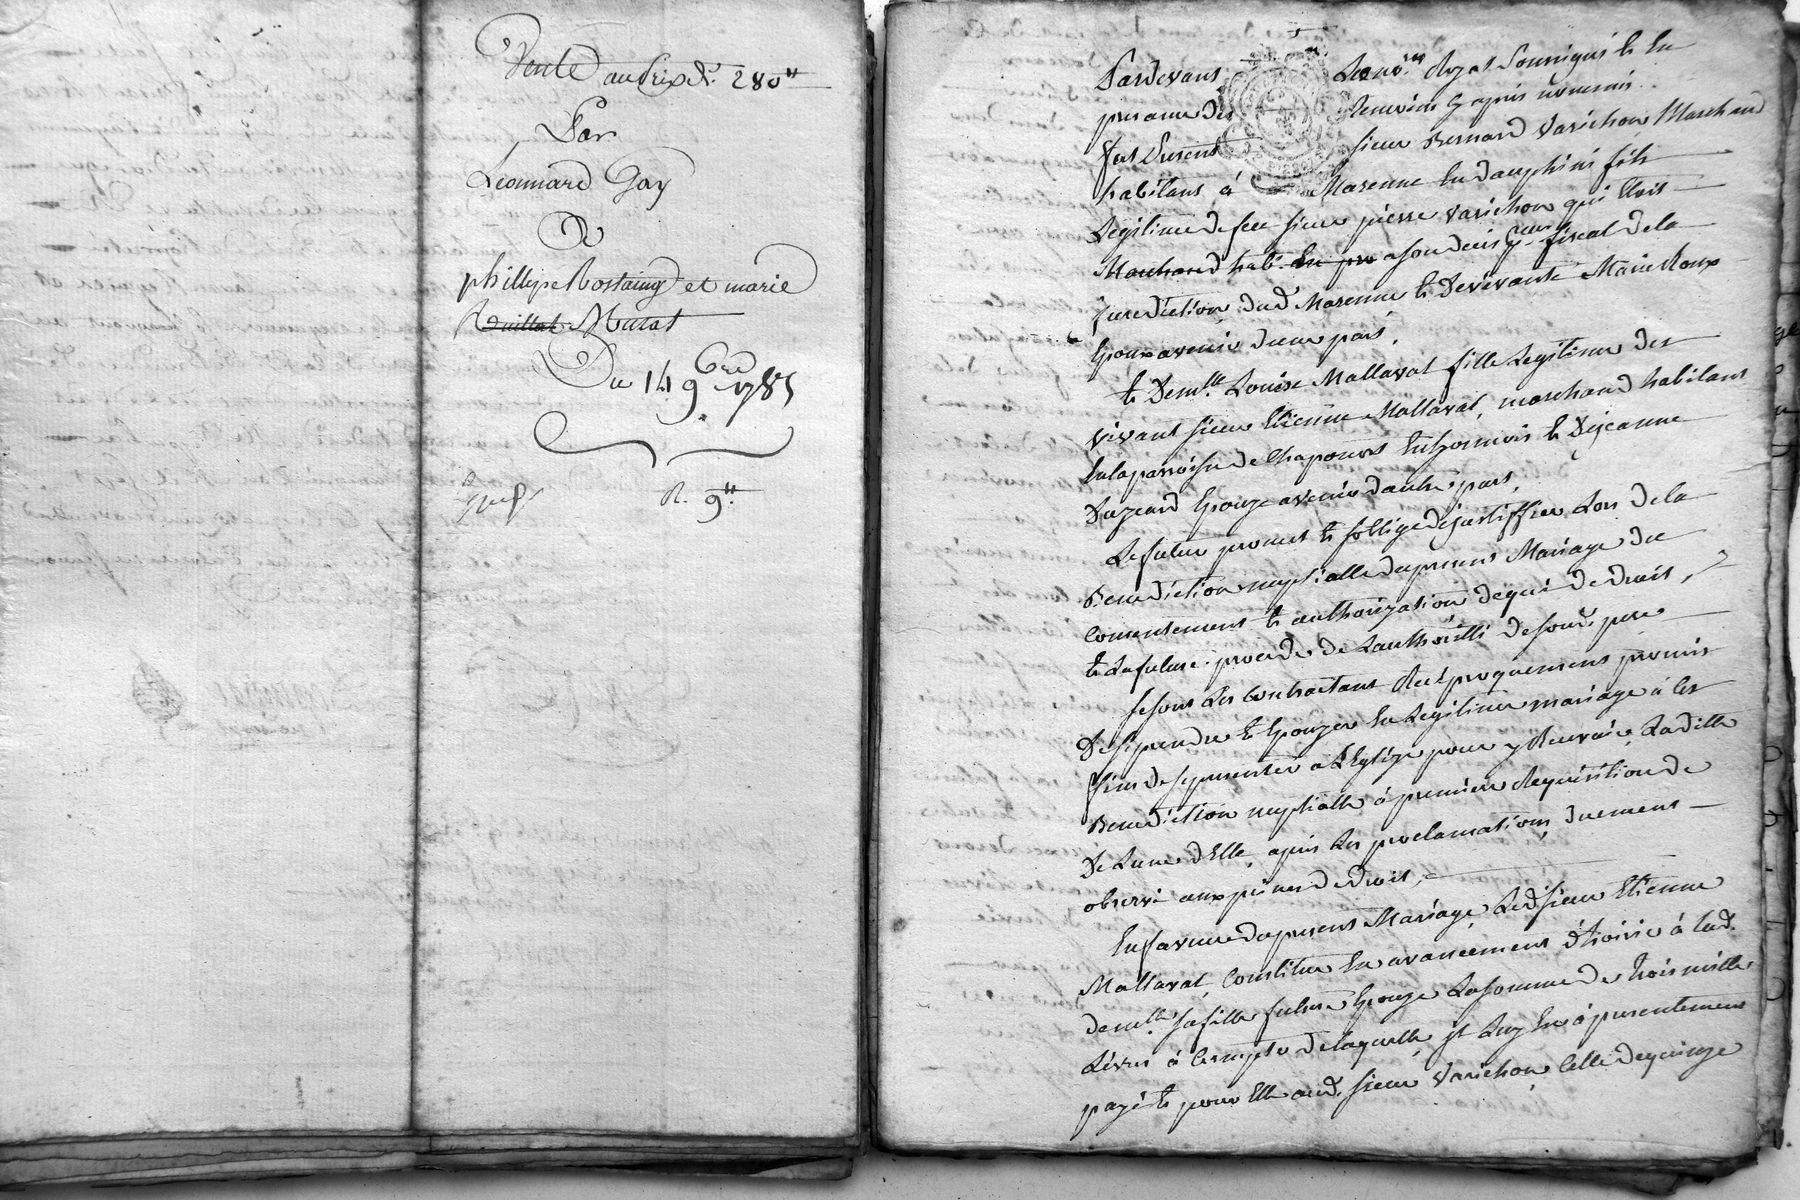 Vente au prix de 280ᵗᵗ
Par
Léonnard Gay
De
phillipe Rostaing et marie
Murat
Du 14 9bre 1785
R. 9ᵗᵗ
Pardevant Le nore Royal Soussigné et En
presence des temoins cy apres nommés
fut Present sieur Bernard Varichon Marchand
habitant à Marenne En dauphiné fils
Légitime de feu sieur pierre Varichon qui Etoit
Marchand habt. a son deces fiscal de la
jurediction dud. Marenne et De vivante Marie Roux
Epoux avenir d'une part,
et Demlle. Louise Mallaval fille Legitime des
vivant sieur Etienne Mallaval, marchand habitant
En la parroisse de Chaponost En Lyonnois et De jeanne
Dugeard Epouze avenir d'autre part,
Le futur promet et soblige de justiffier Lors de la
Benediction nuptialle du present Mariage du
consentement et authorization de qui de Droit,
et La future procede de Lauthorité de sond. pere
se sont Les Contractans Reciproquement promis
De se prendre et Epouzer En Legitime mariage à ces
fins de se presenter a L'Eglize pour y Recevoir La ditte
Benediction nuptialle à premiere Requisition de
De L'une d'Elle, apres Les proclamations duement
observé aux peines de droit,
En faveur du present Mariage Ledt sieur Etienne
Mallaval, Constitue En avancement d'hoirie à lad.
demlle. sa fille future Epouze La somme de trois mille
Livres à Compte de laquelle il Luy En a presentement
payé et pour Elle aud. sieur Varichon Celle de quinze